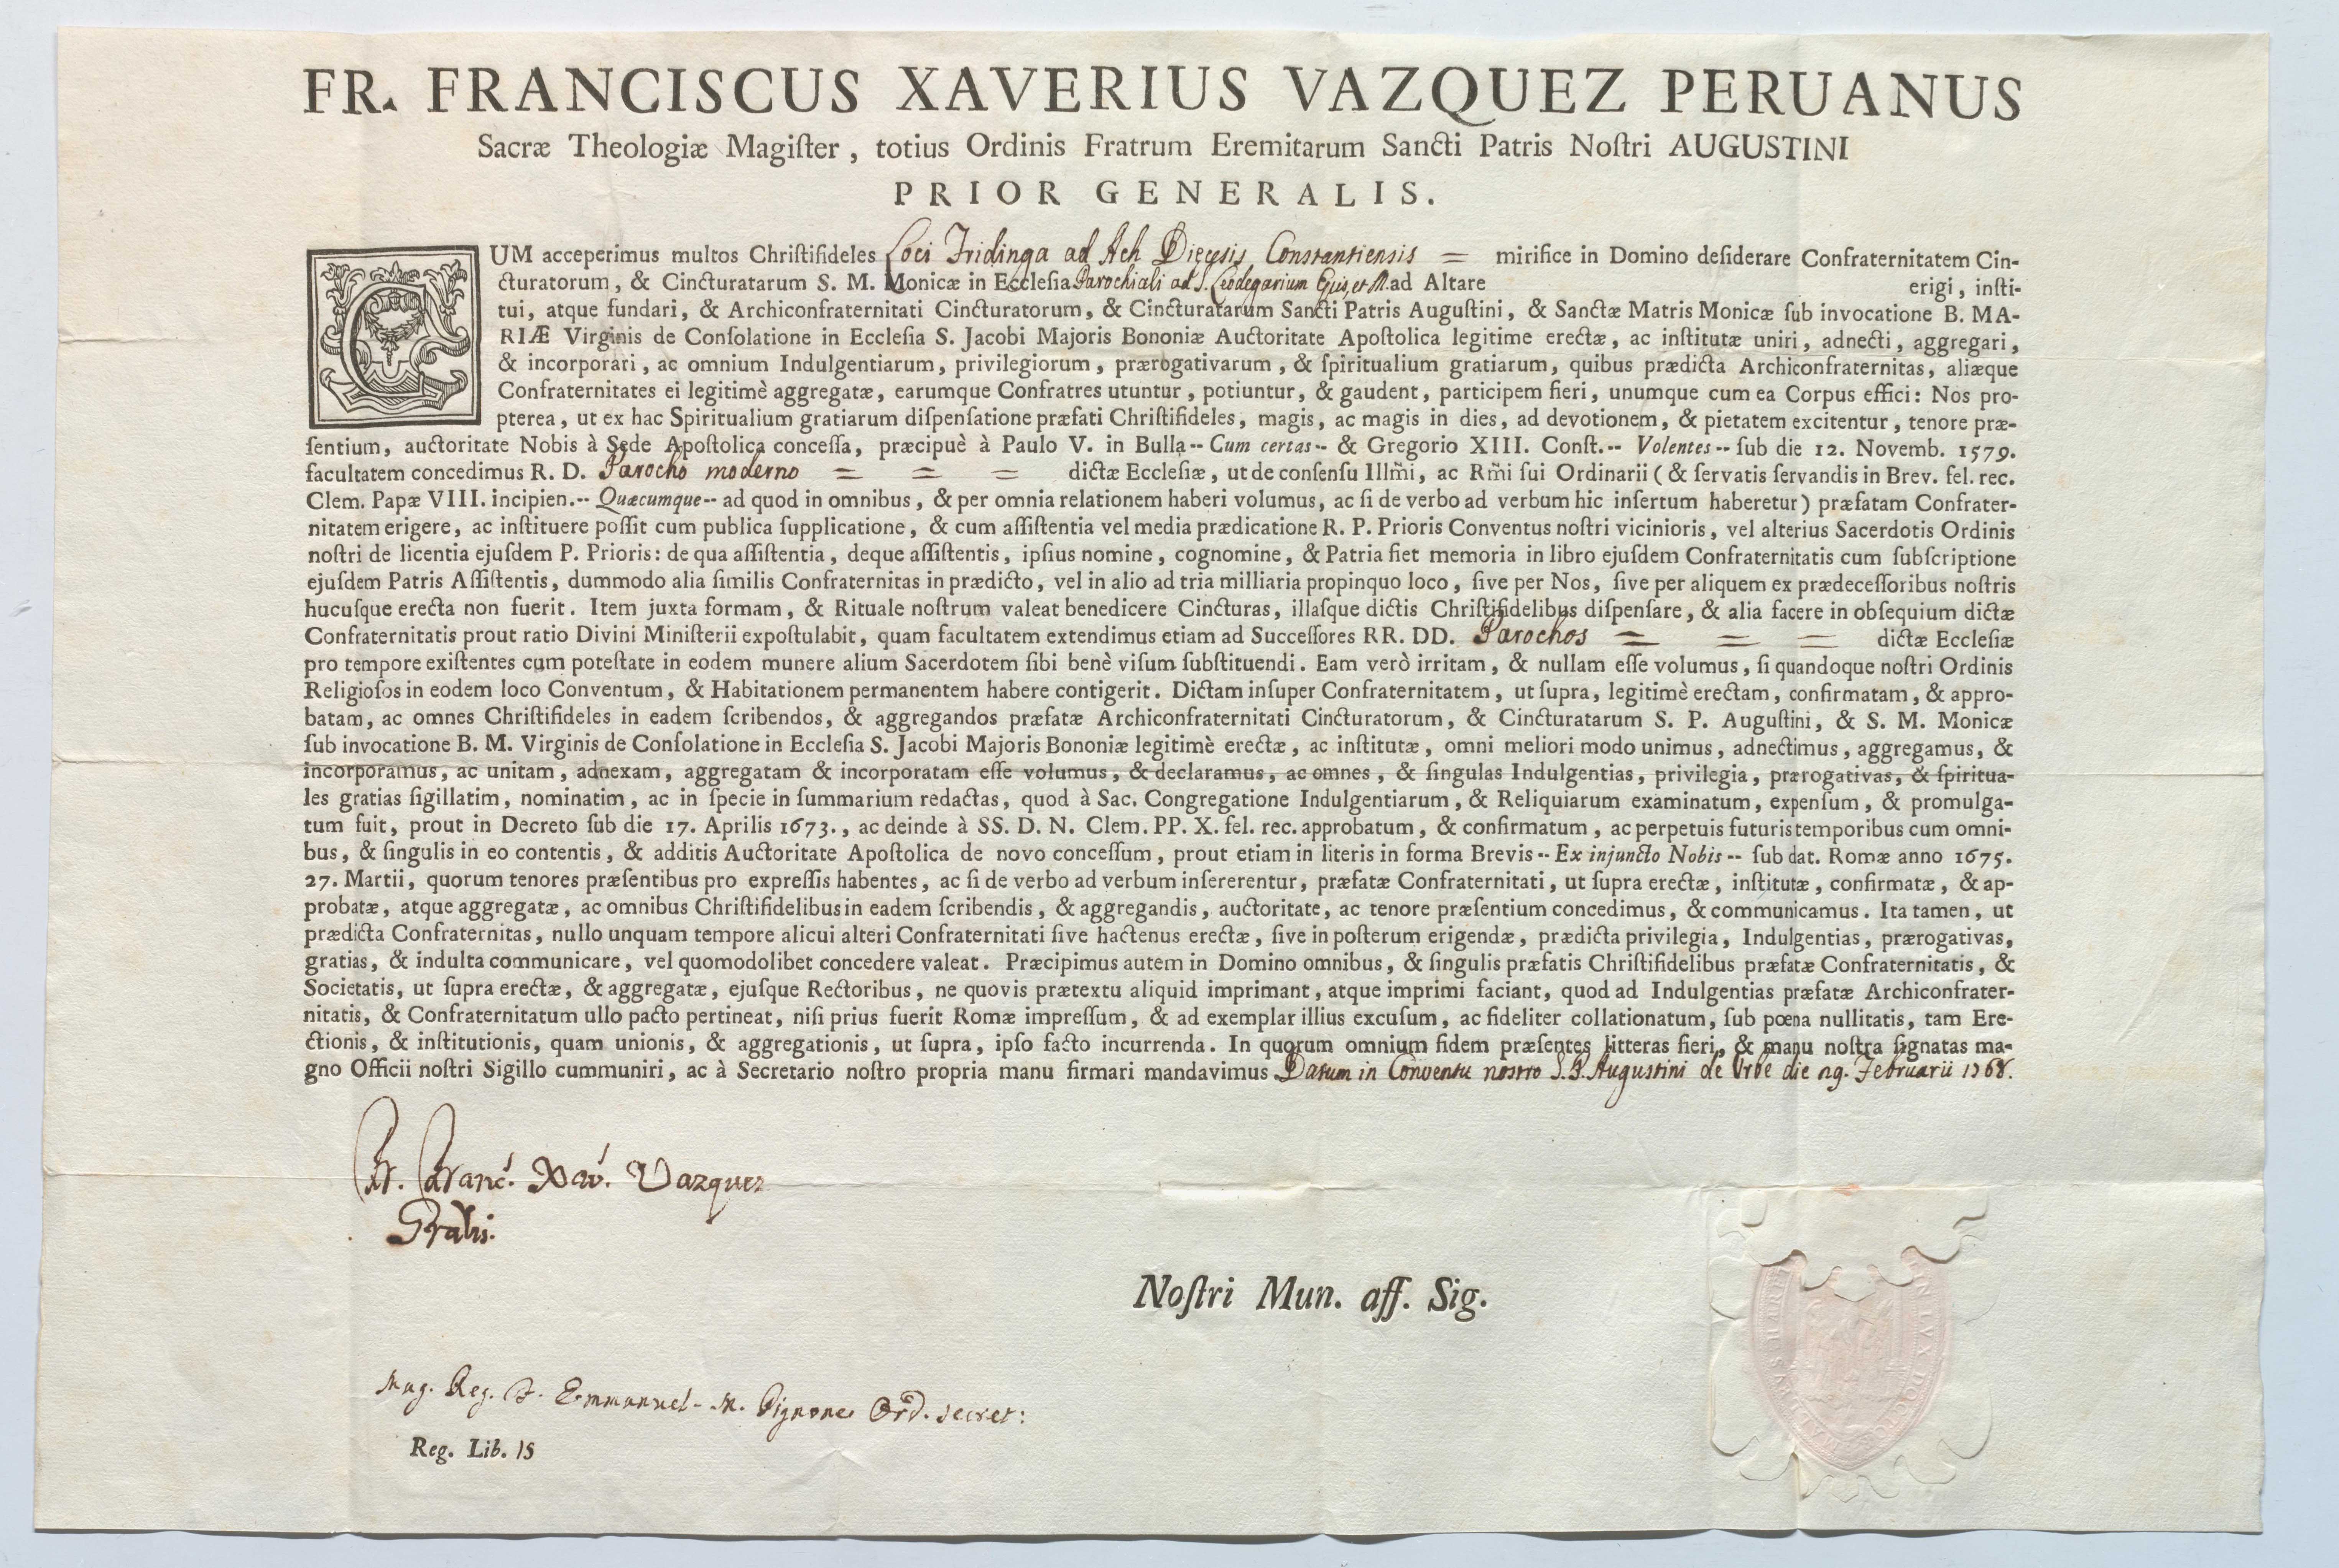 FR. FRANCISCUS XAVERIUS VAZQUEZ PERUANUS
Sacræ Theologiæ Magiſter, totius Ordinis Fratrum Eremitarum Sancti Patris Noſtri AUGUSTINI
PRIOR GENERALIS.
CUM acceperimus multos Chriſtifideles Loci Fridinga ad Ach Diecesis Constantiensis = mirifice in Domino deſiderare Confraternitatem Cin-
cturatorum, & Cincturatarum S. M. Monicæ in Eccleſia Parochiali ad S. Leodegarium Epis. et M. ad Altare erigi, inſti-
tui, atque fundari, & Archiconfraternitati Cincturatorum, & Cincturatarum Sancti Patris Auguſtini, & Sanctæ Matris Monicæ ſub invocatione B. MA-
RIÆ Virginis de Conſolatione in Eccleſia S. Jacobi Majoris Bononiæ Auctoritate Apoſtolica legitime erectæ, ac inſtitutæ uniri, adnecti, aggregari,
& incorporari, ac omnium Indulgentiarum, privilegiorum, prærogativarum, & ſpiritualium gratiarum, quibus prædicta Archiconfraternitas, aliæque
Confraternitates ei legitimè aggregatæ, earumque Confratres utuntur, potiuntur, & gaudent, participem fieri, unumque cum ea Corpus effici: Nos pro-
pterea, ut ex hac Spiritualium gratiarum diſpenſatione præfati Chriſtifideles, magis, ac magis in dies, ad devotionem, & pietatem excitentur, tenore præ-
ſentium, auctoritate Nobis à Sede Apoſtolica conceſſa, præcipuè à Paulo V. in Bulla -- Cum certas -- & Gregorio XIII. Conſt. -- Volentes -- ſub die 12. Novemb. 1579.
facultatem concedimus R. D. Parocho moderno = = = dictæ Eccleſiæ, ut de conſenſu Illm̃i, ac Rm̃i ſui Ordinarii (& ſervatis ſervandis in Brev. fel. rec.
Clem. Papæ VIII. incipien. -- Quæcumque -- ad quod in omnibus, & per omnia relationem haberi volumus, ac ſi de verbo ad verbum hic inſertum haberetur) præfatam Confrater-
nitatem erigere, ac inſtituere poſſit cum publica ſupplicatione, & cum aſſiſtentia vel media prædicatione R. P. Prioris Conventus noſtri vicinioris, vel alterius Sacerdotis Ordinis
noſtri de licentia ejuſdem P. Prioris: de qua aſſiſtentia, deque aſſiſtentis, ipſius nomine, cognomine, & Patria fiet memoria in libro ejuſdem Confraternitatis cum ſubſcriptione
ejuſdem Patris Aſſiſtentis, dummodo alia ſimilis Confraternitas in prædicto, vel in alio ad tria milliaria propinquo loco, ſive per Nos, ſive per aliquem ex prædeceſſoribus noſtris
hucuſque erecta non fuerit. Item juxta formam, & Rituale noſtrum valeat benedicere Cincturas, illaſque dictis Chriſtifidelibus diſpenſare, & alia facere in obſequium dictæ
Confraternitatis prout ratio Divini Miniſterii expoſtulabit, quam facultatem extendimus etiam ad Succeſſores RR. DD. Parochos = = = dictæ Eccleſiæ
pro tempore exiſtentes cum poteſtate in eodem munere alium Sacerdotem ſibi benè viſum ſubſtituendi. Eam verò irritam, & nullam eſſe volumus, ſi quandoque noſtri Ordinis
Religioſos in eodem loco Conventum, & Habitationem permanentem habere contigerit. Dictam inſuper Confraternitatem, ut ſupra, legitimè erectam, confirmatam, & appro-
batam, ac omnes Chriſtifideles in eadem ſcribendos, & aggregandos præfatæ Archiconfraternitati Cincturatorum, & Cincturatarum S. P. Auguſtini, & S. M. Monicæ
ſub invocatione B. M. Virginis de Conſolatione in Eccleſia S. Jacobi Majoris Bononiæ legitimè erectæ, ac inſtitutæ, omni meliori modo unimus, adnectimus, aggregamus, &
incorporamus, ac unitam, adnexam, aggregatam & incorporatam eſſe volumus, & declaramus, ac omnes, & ſingulas Indulgentias, privilegia, prærogativas, & ſpiritua-
les gratias ſigillatim, nominatim, ac in ſpecie in ſummarium redactas, quod à Sac. Congregatione Indulgentiarum, & Reliquiarum examinatum, expenſum, & promulga-
tum fuit, prout in Decreto ſub die 17. Aprilis 1673., ac deinde à SS. D. N. Clem. PP. X. fel. rec. approbatum, & confirmatum, ac perpetuis futuris temporibus cum omni-
bus, & ſingulis in eo contentis, & additis Auctoritate Apoſtolica de novo conceſſum, prout etiam in literis in forma Brevis -- Ex injuncto Nobis -- ſub dat. Romæ anno 1675.
27. Martii, quorum tenores præſentibus pro expreſſis habentes, ac ſi de verbo ad verbum inſererentur, præfatæ Confraternitati, ut ſupra erectæ, inſtitutæ, confirmatæ, & ap-
probatæ, atque aggregatæ, ac omnibus Chriſtifidelibus in eadem ſcribendis, & aggregandis, auctoritate, ac tenore præſentium concedimus, & communicamus. Ita tamen, ut
prædicta Confraternitas, nullo unquam tempore alicui alteri Confraternitati ſive hactenus erectæ, ſive in poſterum erigendæ, prædicta privilegia, Indulgentias, prærogativas,
gratias, & indulta communicare, vel quomodolibet concedere valeat. Præcipimus autem in Domino omnibus, & ſingulis præfatis Chriſtifidelibus præfatæ Confraternitatis, &
Societatis, ut ſupra erectæ, & aggregatæ, ejuſque Rectoribus, ne quovis prætextu aliquid imprimant, atque imprimi faciant, quod ad Indulgentias præfatæ Archiconfrater-
nitatis, & Confraternitatum ullo pacto pertineat, niſi prius fuerit Romæ impreſſum, & ad exemplar illius excuſum, ac fideliter collationatum, ſub pœna nullitatis, tam Ere-
ctionis, & inſtitutionis, quam unionis, & aggregationis, ut ſupra, ipſo facto incurrenda. In quorum omnium fidem præſentes litteras fieri, & manu noſtra ſignatas ma-
gno Officii noſtri Sigillo cummuniri, ac à Secretario noſtro propria manu firmari mandavimus Datum in Conventu nostro S. P. Augustini de Urbe die 29. Februarii 1768.
Fr. Franc. Xav. Vazquez
Gralis.
Noſtri Mun. aff. Sig.
Mag. Reg. F. Emmanuel M. Pignone Ord. Secret:
Reg. Lib. 15